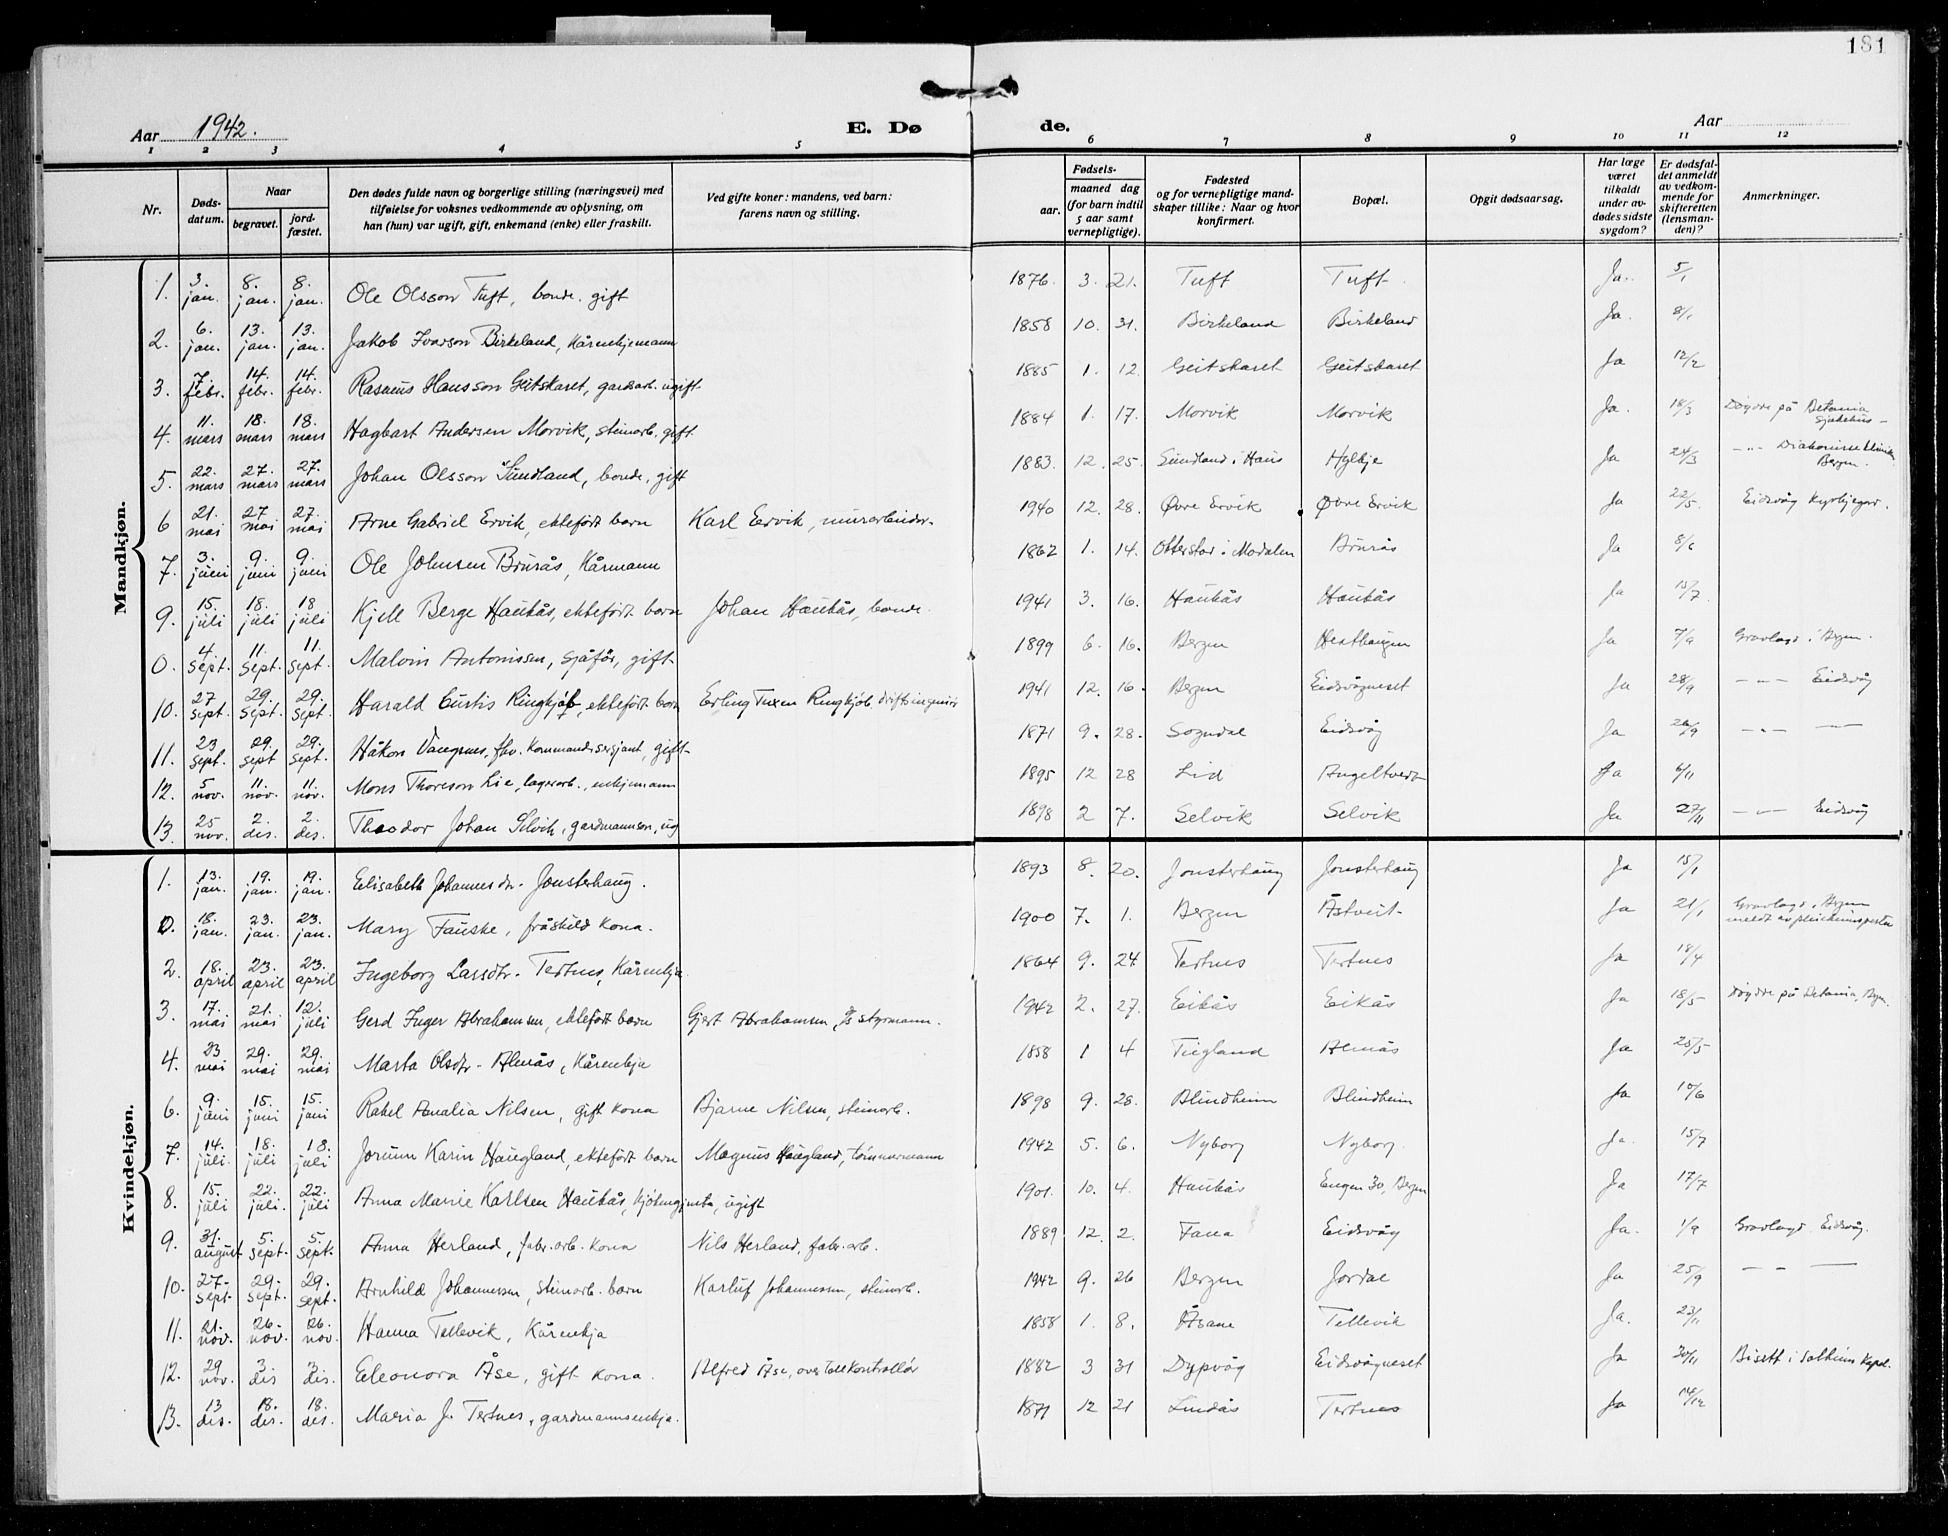 181
Aar 1942. E. Døde. Aar
1 2 3 4 5 6 7 8 9 10 11 12
Nr. Dødsdatum. Naar begravet. jordfæstet. Den dødes fulde navn og borgerlige stilling (næringsvei) med tilføielse for voksnes vedkommende av oplysning, om han (hun) var ugift, gift, enkemand (enke) eller fraskilt. Ved gifte koner: mandens, ved barn: farens navn og stilling. Fødsels- aar. maaned dag (for barn indtil 5 aar samt vernepligtige). Fødested og for vernepligtige mandskaper tillike: Naar og hvor konfirmert. Bopæl. Opgit dødsaarsag. Har læge været tilkaldt under avdødes sidste sygdom? Er dødsfaldet anmeldt av vedkommende for skifteretten (lensmanden)? Anmerkninger.
Mandkjøn.
1. 3. jan. 8. jan. 8. jan. Ole Olsson Tuft, bonde. gift 1876. 3. 21. Tuft Tuft Ja. 5/1
2. 6. jan. 13. jan. 13. jan. Jakob Ivarson Birkeland, Kårenkjemann 1858 10. 31. Birkeland Birkeland Ja. 8/1
3. 7. febr. 14. febr. 14. febr. Rasmus Hansson Geitskaret, gardsarb. ugift 1885 1. 12. Geitskaret Geitskaret Ja 12/2
4. 11. mars 18. mars 18. mars Hagbart Andersen Morvik, steinarb. gift 1884 1. 17. Morvik Morvik Ja. 18/3 Døydde på Betania Sjukehus
5. 22. mars 27. mars 27. mars Johan Olsson Sundland, bonde, gift 1883. 12. 25. Sundland i Haus Hylkje Ja 24/3 — " — Diakonisseklinikk Bergen.
6 21. mai 27 mai 27. mai Arne Gabriel Ervik, ektefødt barn Karl Ervik, murarbeider. 1940 12. 28. Øvre Ervik Øvre Ervik Ja 22/5. Eidsvåg Kyrkjegar.
7. 3. juni 9. juni 9. juni Ole Johnsen Brurås, Kårmann 1862 1. 14. Otterstad i Modalen Brurås Ja 8/6
9. 15. juli 18. juli 18 juli Kjell Berge Haukås, ektefødt barn Johan Haukås, bonde. 1941 3. 16. Haukås Haukås Ja 15/7.
0. 4. sept. 11. sept. 11. sept. Malvin Antonissen, sjåfør, gift 1899 6. 16. Bergen Hesthaugen Ja 7/9 Gravlagd i Bergen.
10. 27 sept. 29. sept. 29. sept. Harald Curtis Ringkjøb, ektefødt barn Erling Tuxen Ringkjøb. driftsingeniør 1941 12. 16. Bergen Eidsvågneset Ja 28/9 — " — Eidsvåg
11. 23 sept. 29. sept 29. sept. Håkon Vangsnes, fhv. Kommandersersjant, gift 1871 9. 28. Sogndal Eidsvåg Ja 26/9 — " — —
12. 5 nov. 11. nov. 11. nov. Mons Thoreson Lie, lagerarb., enkjemann 1895 12 28 Lid Ja 6/11
13. 25 nov. 2. des. 2. des. Theodor Johan Selvik, gardmannson, ug 1898 2 7. Selvik Selvik Ja 27/11 — " — Eidsvåg
Kvindekjøn.
1. 13. jan. 19. jan. 19. jan. Elisabeth Johannesdr. Jonsterhaug. 1893 8. 20. Jonsterhaug Jonsterhaug Ja 15/1
0. 18. jan. 23. jan. 23. jan. Mary Fauske, fråskild kona. 1900 7. 1. Bergen Åstveit Ja 21/1 Gravlagd i Bergen meldt av
2. 18. april 23. april 23. april Ingeborg Larsdtr. Tertnes, Kårenkja 1864 9. 24 Tertnes Tertnes Ja 18/4
3. 17. mai 21. mai 12. juli Gerd Inger Abrahamsen, ektefødt barn Gjert Abrahamsen, styrmann. 1942 2. 27. Eikås Eikås Ja 18/5 Døydde på Betania, Bgn.
4. 23 mai 29. mai 29. mai Marta Olsdtr. Almås, Kårenkja 1858 1 4 Tugland Almås Ja 25/5
6. 9. juni 15. juni 15. juni Rakel Amalia Nilsen, gift kona Bjarne Nilsen, steinarb. 1898 9. 28. Blindheim Blindheim Ja 10/6
7. 14. juli 18. juli 18. juli Jorunn Karin Haugland, ektefødt barn Magnus Haugland, tømmermann 1942 5. 6. Nyborg Nyborg. Ja. 15/7
8. 15. juli 22. juli. 22. juli Anna Marie Karlsen Haukås, kjøkengjenta, ugift 1901. 10. 4. Haukås Engen 30, Bergen Ja 17/7
9. 31. august 5. sept. 5. sept. Anna Herland, fabr.arb. kona Nils Herland, fabr.arb. 1889 12. 2. Fana Eidsvåg Ja. 1/9 Gravlagd Eidsvåg.
10. 27 sept. 29. sept. 29. sept. Arnhild Johannessen, steinarb. barn Karluf Johannessen, steinarb. 1942 9. 26 Bergen Jordal Ja 25/9 — " — —
11. 21. nov. 26. nov. 26. nov. Hanna Tellevik, Kårenkja 1858 1. 8. Åsane Tellevik Ja. 23/11
12. 29 nov. 3. des 3. des. Eleonora Åse, gift kona. Alfred Åse, overtollkontrollør 1882 3 31 Dypvåg Eidsvågneset Ja 30/11 Bisett i Solheim Kapel.
13. 13 des. 18. des. 18. des. Maria J. Tertnes, gardmannsenkja. 1871 12 21 Lindås Tertnes Ja 14/12